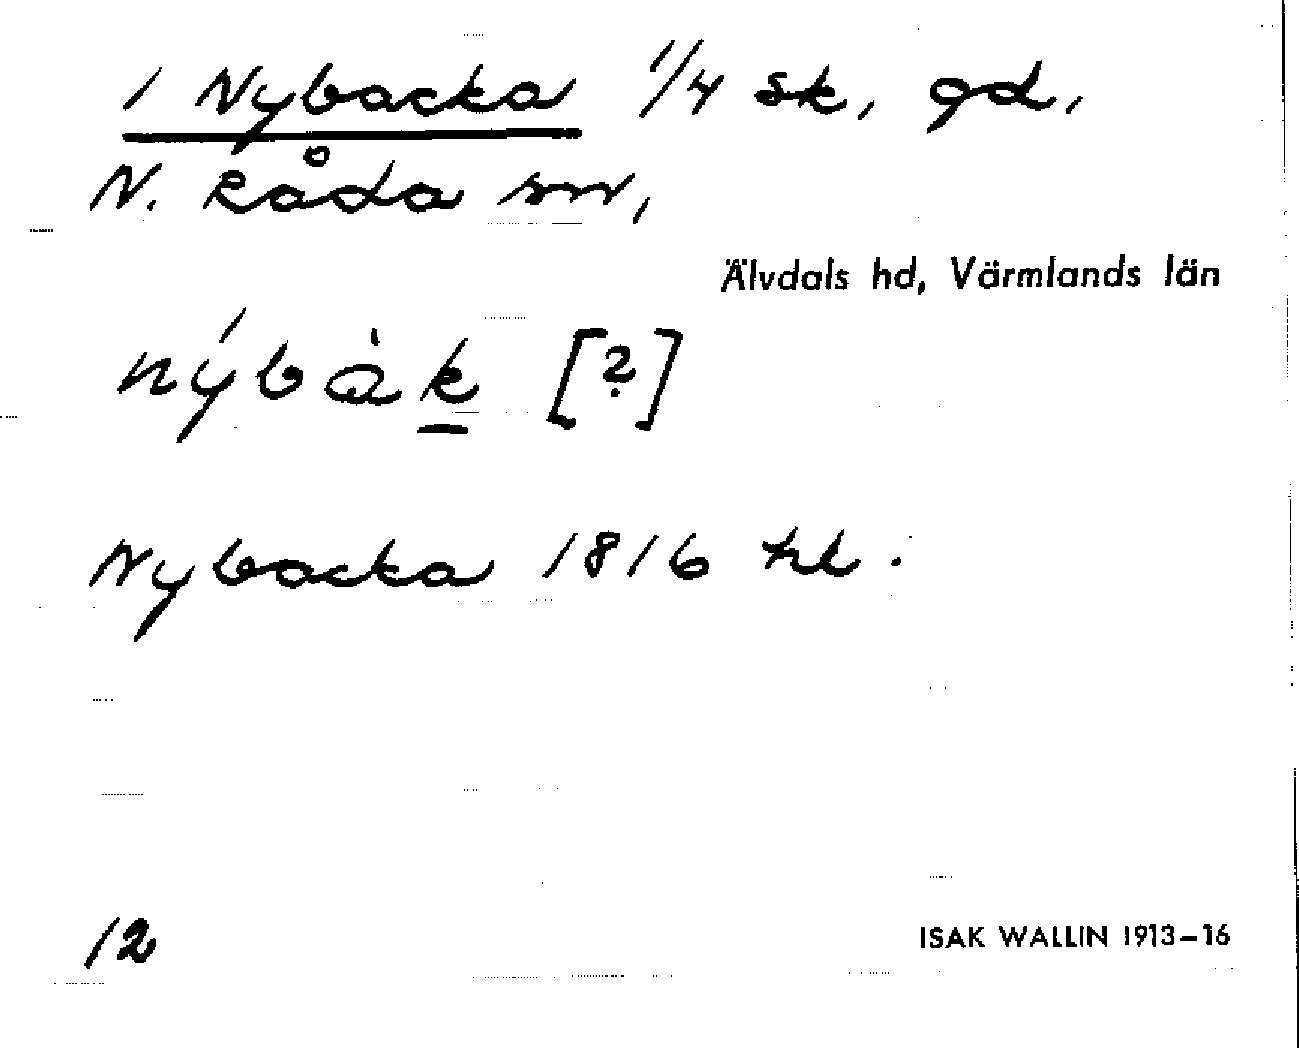 1 Nybacka 1/4 sk, gd,
N. Råda sn,
Älvdals hd, Värmlands län
nýbàk [?]
Nybacka 1816 hl.
12
ISAK WALLIN 1913–16